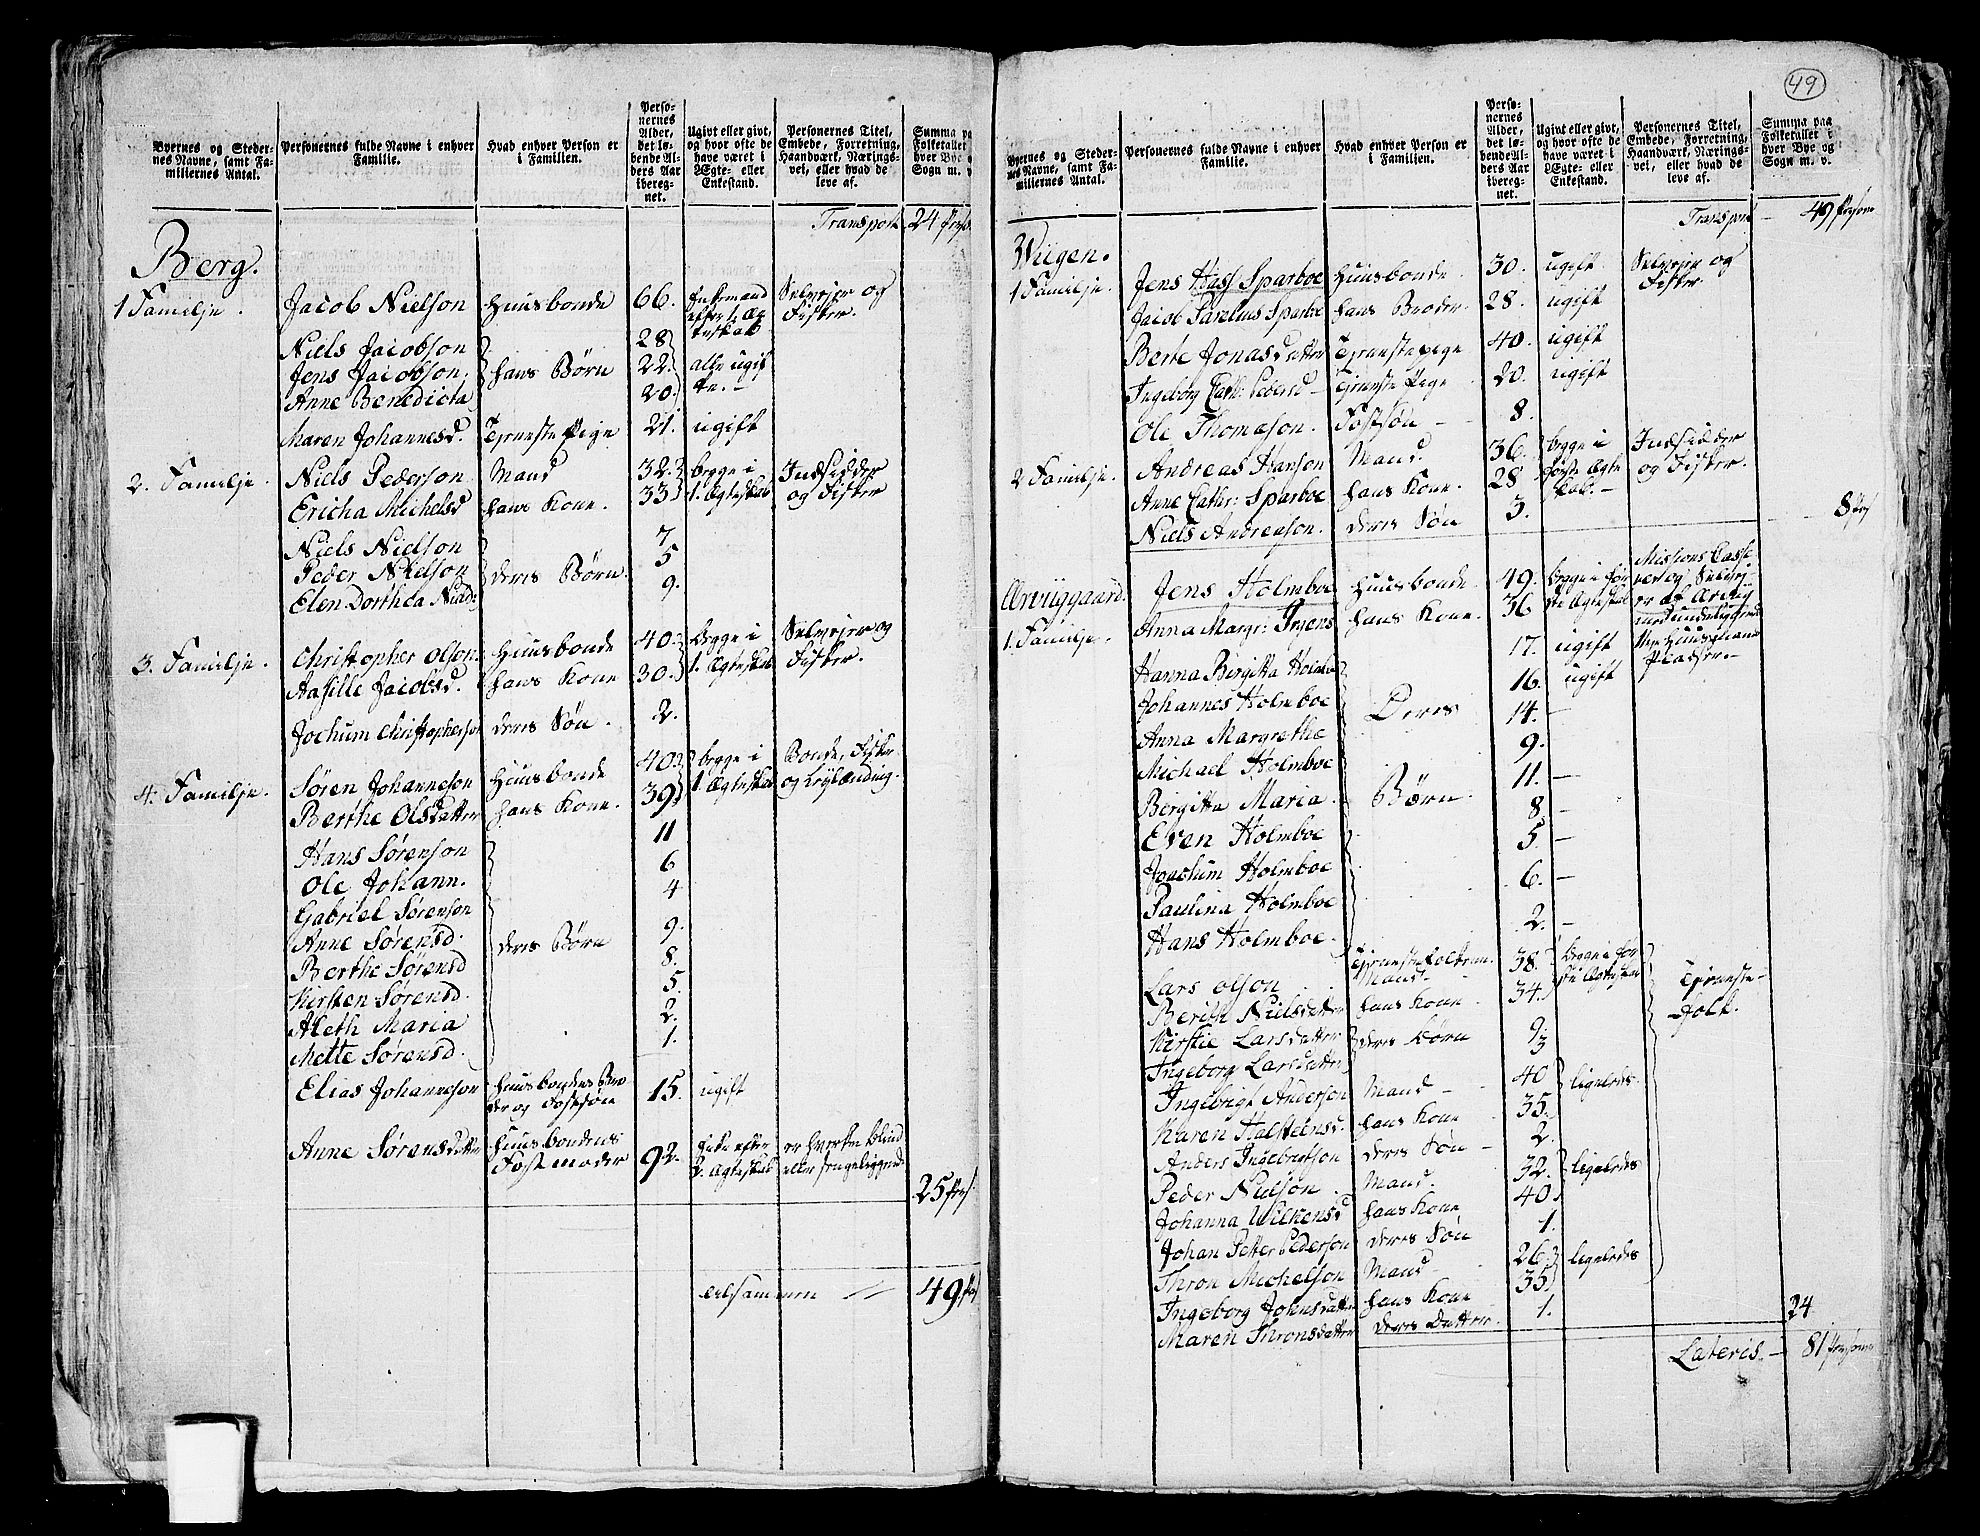 Byernes og Steder-
nes Navne, samt Fa-
miliernes Antal.
Personernes fulde Navne i enhver
Familie.
Hvad enhver Person er
i Familien.
Perso-
nernes
Alder,
det lø-
bende Al-
ders Aar
iberegnet.
Ugivt eller givt,
og hvor ofte de
have været i
Ægte- eller
Enkestand.
Personernes Titel,
Embede, Forretning,
Haandværk, Nærings-
vei, eller hvad de
leve af.
Summa pa
Folketallet
hver Bye o
Sogn m. v.
Transport 24
Berg.
1 Familje. Jacob Nielson Huusbonde 66. Enkemand Selvejer og
Fisker.
Niels Jacobson 28
Jens Jacobson. hans Børn 22. alle ugif
Anne Benedicta 20. te.
Maren Johannesd. Tjeneste Pige 21. ugift
2. Familje. Niels Pederson Mand 32. begge i Indsidder
Ericha Michelsd hans Kone. 33 1. Ægteskab og Fisker
Niels Nielson 7
Peder Nielson deres Børn. 5
Elen Dorthea Nield: 9.
3. Familje. Christopher Olson. Huusbonde 40. begge i Selvejer og
Aasille Jacobsd. hans Kone 30. 1. Ægteskab Fisker.
Jochum Christopherson deres Søn. 2.
4. Familje. Søren Johanneson Huusbonde 40. begge i Bonde, Fisker
Berthe Olsdatter hans Kone. 39. 1. Ægteskab og Leylænding.
Hans Sørenson 11
Ole Johann. 6
Gabriel Sørenson 4
Anne Sørensd. deres Børn 9.
Berthe Sørensd 8.
Kirsten Sørensd. 5.
Aleth Maria 2.
Mette Sørensd. 1.
Elias Johanneson Huusbondens Bro-
der og Fostsøn 15. ugift
Anne Sørensdatter Huusbondens
Fostmoder 92. Enke efter er hverken blind
2. Ægteskab eller sengeliggend.
25
tilsammen 49
49
Byernes og Steder-
nes Navne, samt Fa-
miliernes Antal.
Personernes fulde Navne i enhver
Familie.
Hvad enhver Person er
i Familien.
Perso-
nernes
Alder,
det lø-
bende Al-
ders Aar
iberegnet.
Ugivt eller givt,
og hvor ofte de
have været i
Ægte- eller
Enkestand.
Personernes Titel,
Embede, Forretning,
Haandværk, Nærings-
vei, eller hvad de
leve af.
Summa paa
Folketallet i
hver Bye og
Sogn m. v.
Transport 49 Persone
Wiigen.
1 Familje. Jens Hass Sparboe Huusbonde. 30. ugift Selvejer og
Fisker
Jacob Sparboe hans Broder. 28. ugift
Berte Jonasdatter Tjenestepige 40. ugift
Ingeborg Cath: Pedersd Tjeneste Pige 20. ugift
Ole Thomason. Fostsøn 8.
2 Familje. Andreas Hanson Mand. 36. begge i Indsidder
Anne Cathr: Sparboe hans Kone. 28 første Ægte og Fisker.
skab.
Niels Andreason. deres Søn 3.
8
Arviiggaard. Jens Holmboe Huusbonde 49. begge i før Missions Casse
1. Familje. Anna Margr: Irgens hans Kone. 36 ste Ægteskab
Hanna Birgitta Holmboe 17. ugift
Johannes Holmboe Deres 16. ugift
Anna Margrethe 14.
Michael Holmboe 9.
Birgitta Maria. Børn. 11.
Even Holmboe 8
Joachum Holmboe 5
Paulina Holmboe 6.
Hans Holmboe. 2.
Lars Olson Mand. 38. begge i før Tjeneste-
Berith Nielsdatter hans Kone 34. ste Ægteskab Folk.
Kirstie Larsdatter deres Børn 9
Ingeborg Larsdatter 3
Ingebrigt Anderson Mand 40 ligeledes
Karen Halsteensd. hans Kone 35.
Anders Ingebrigtson deres Søn 2.
Peder Nielson Mand. 32. ligeledes
Johanna Wilkensd hans Kone 40.
Johan Petter Pederson deres Søn 1.
Thron Michelson Mand 26. ligeledes
Ingeborg Johnsdatter hans Kone 35
Maren Thronsdatter deres Datter. 1.
24
Lateris 81 Persone